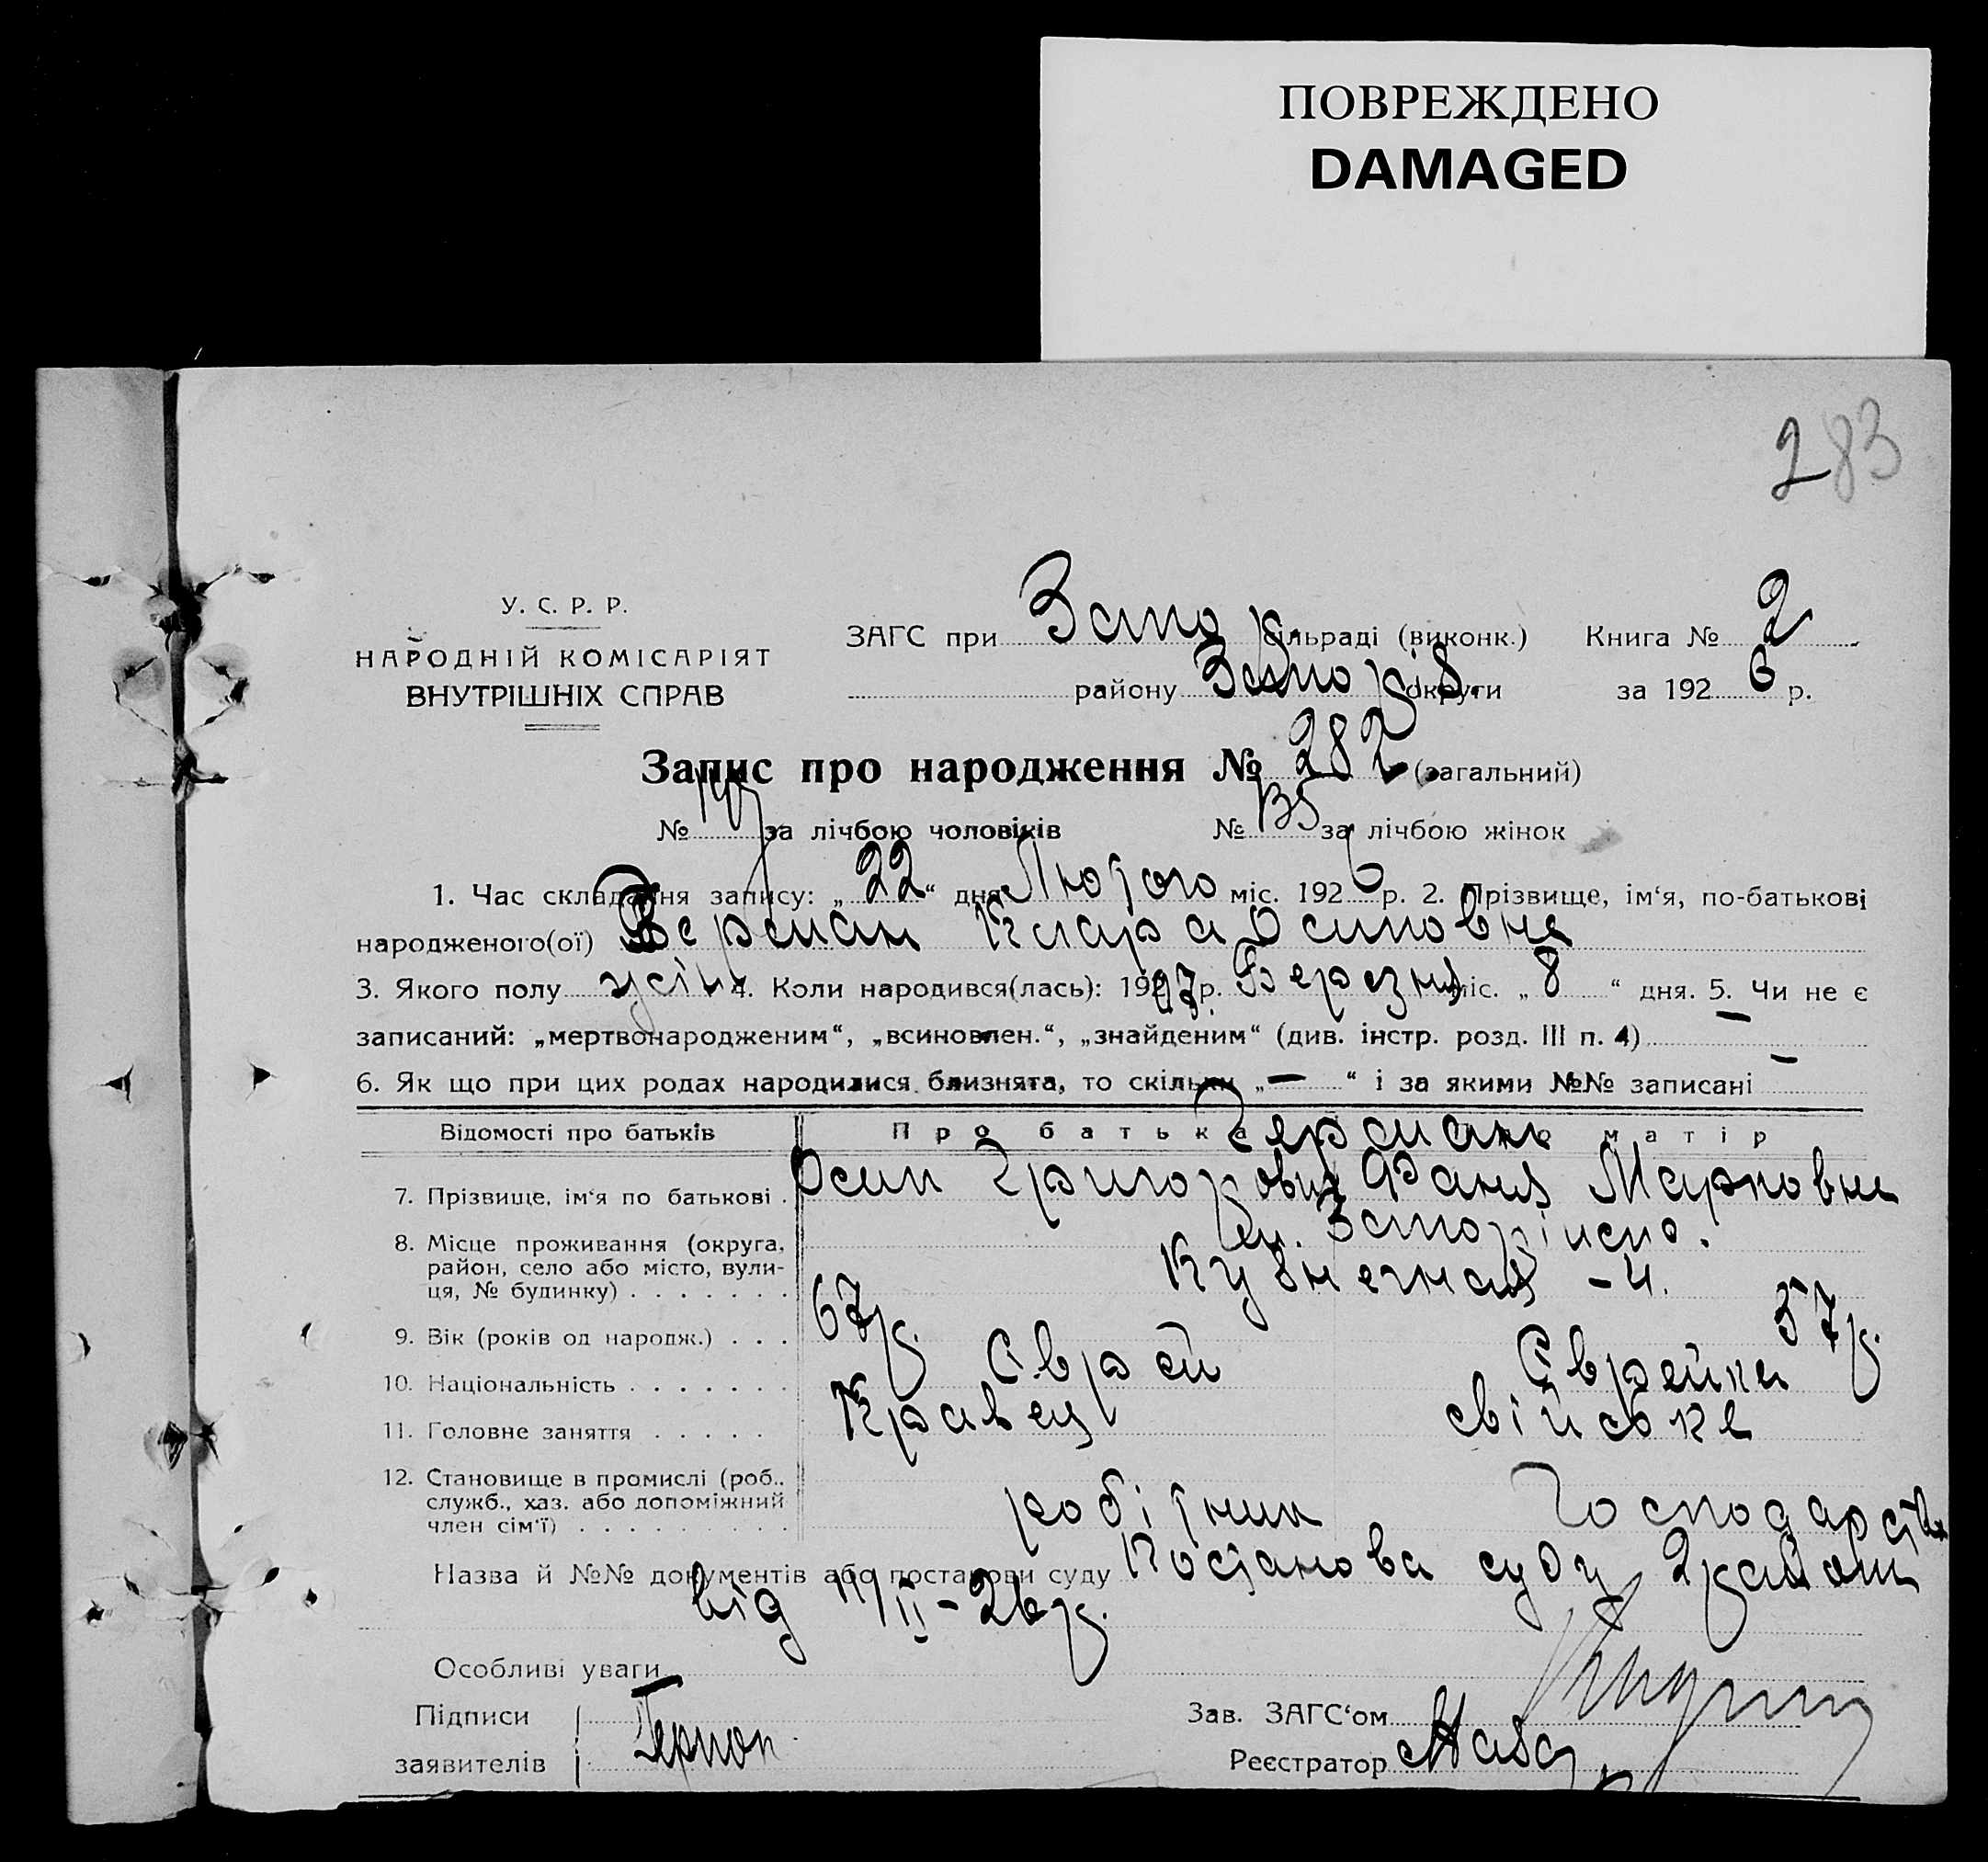 ПОВРЕЖДЕНО
DAMAGED
283
У. С. Р. Р.
НАРОДНІЙ КОМІСАРІЯТ
ВНУТРІШНІХ СПРАВ
ЗАГС при Запор сільраді (виконк.) Книга № 2
району Запоріз. округи за 1926 р.
Запис про народження № 282 (загальний)
№ 147 за лічбою чоловіків № 135 за лічбою жінок
1. Час складання запису: „22“ дня Лютого міс. 1926 р. 2. Прізвище, ім‘я, по-батькові
народженого(ої) Герман Клара Осиповна
3. Якого полу жін 4. Коли народився(лась): 1907 р. Березня міс. „8“ дня. 5. Чи не є
записаний: „мертвонародженим“, „всиновлен.“, „знайденим“ (див. інстр. розд. III п. 4) —
6. Як що при цих родах народилися близнята, то скільки „—“ і за якими №№ записані —
Відомості про батьків Про батька Герман матір
7. Прізвище, ім‘я по батькові Осип Григорович Фаня Марковна
8. Місце проживання (округа, район, село або місто, вулиця, № будинку) м. Запоріжжє.
Кузнечная – 4.
9. Вік (років од народж.) 67 р. 57 р.
10. Національність Єврей Єврейка
11. Головне заняття Кравець свійське
12. Становище в промислі (роб., служб., хаз. або допоміжний член сім‘ї) робітник Господарство
Назва й №№ документів або постанови суду Постанова суду 2 району
від 11/II–26 р.
Особливі уваги
Підписи
заявителів
Зав. ЗАГС‘ом
Реєстратор